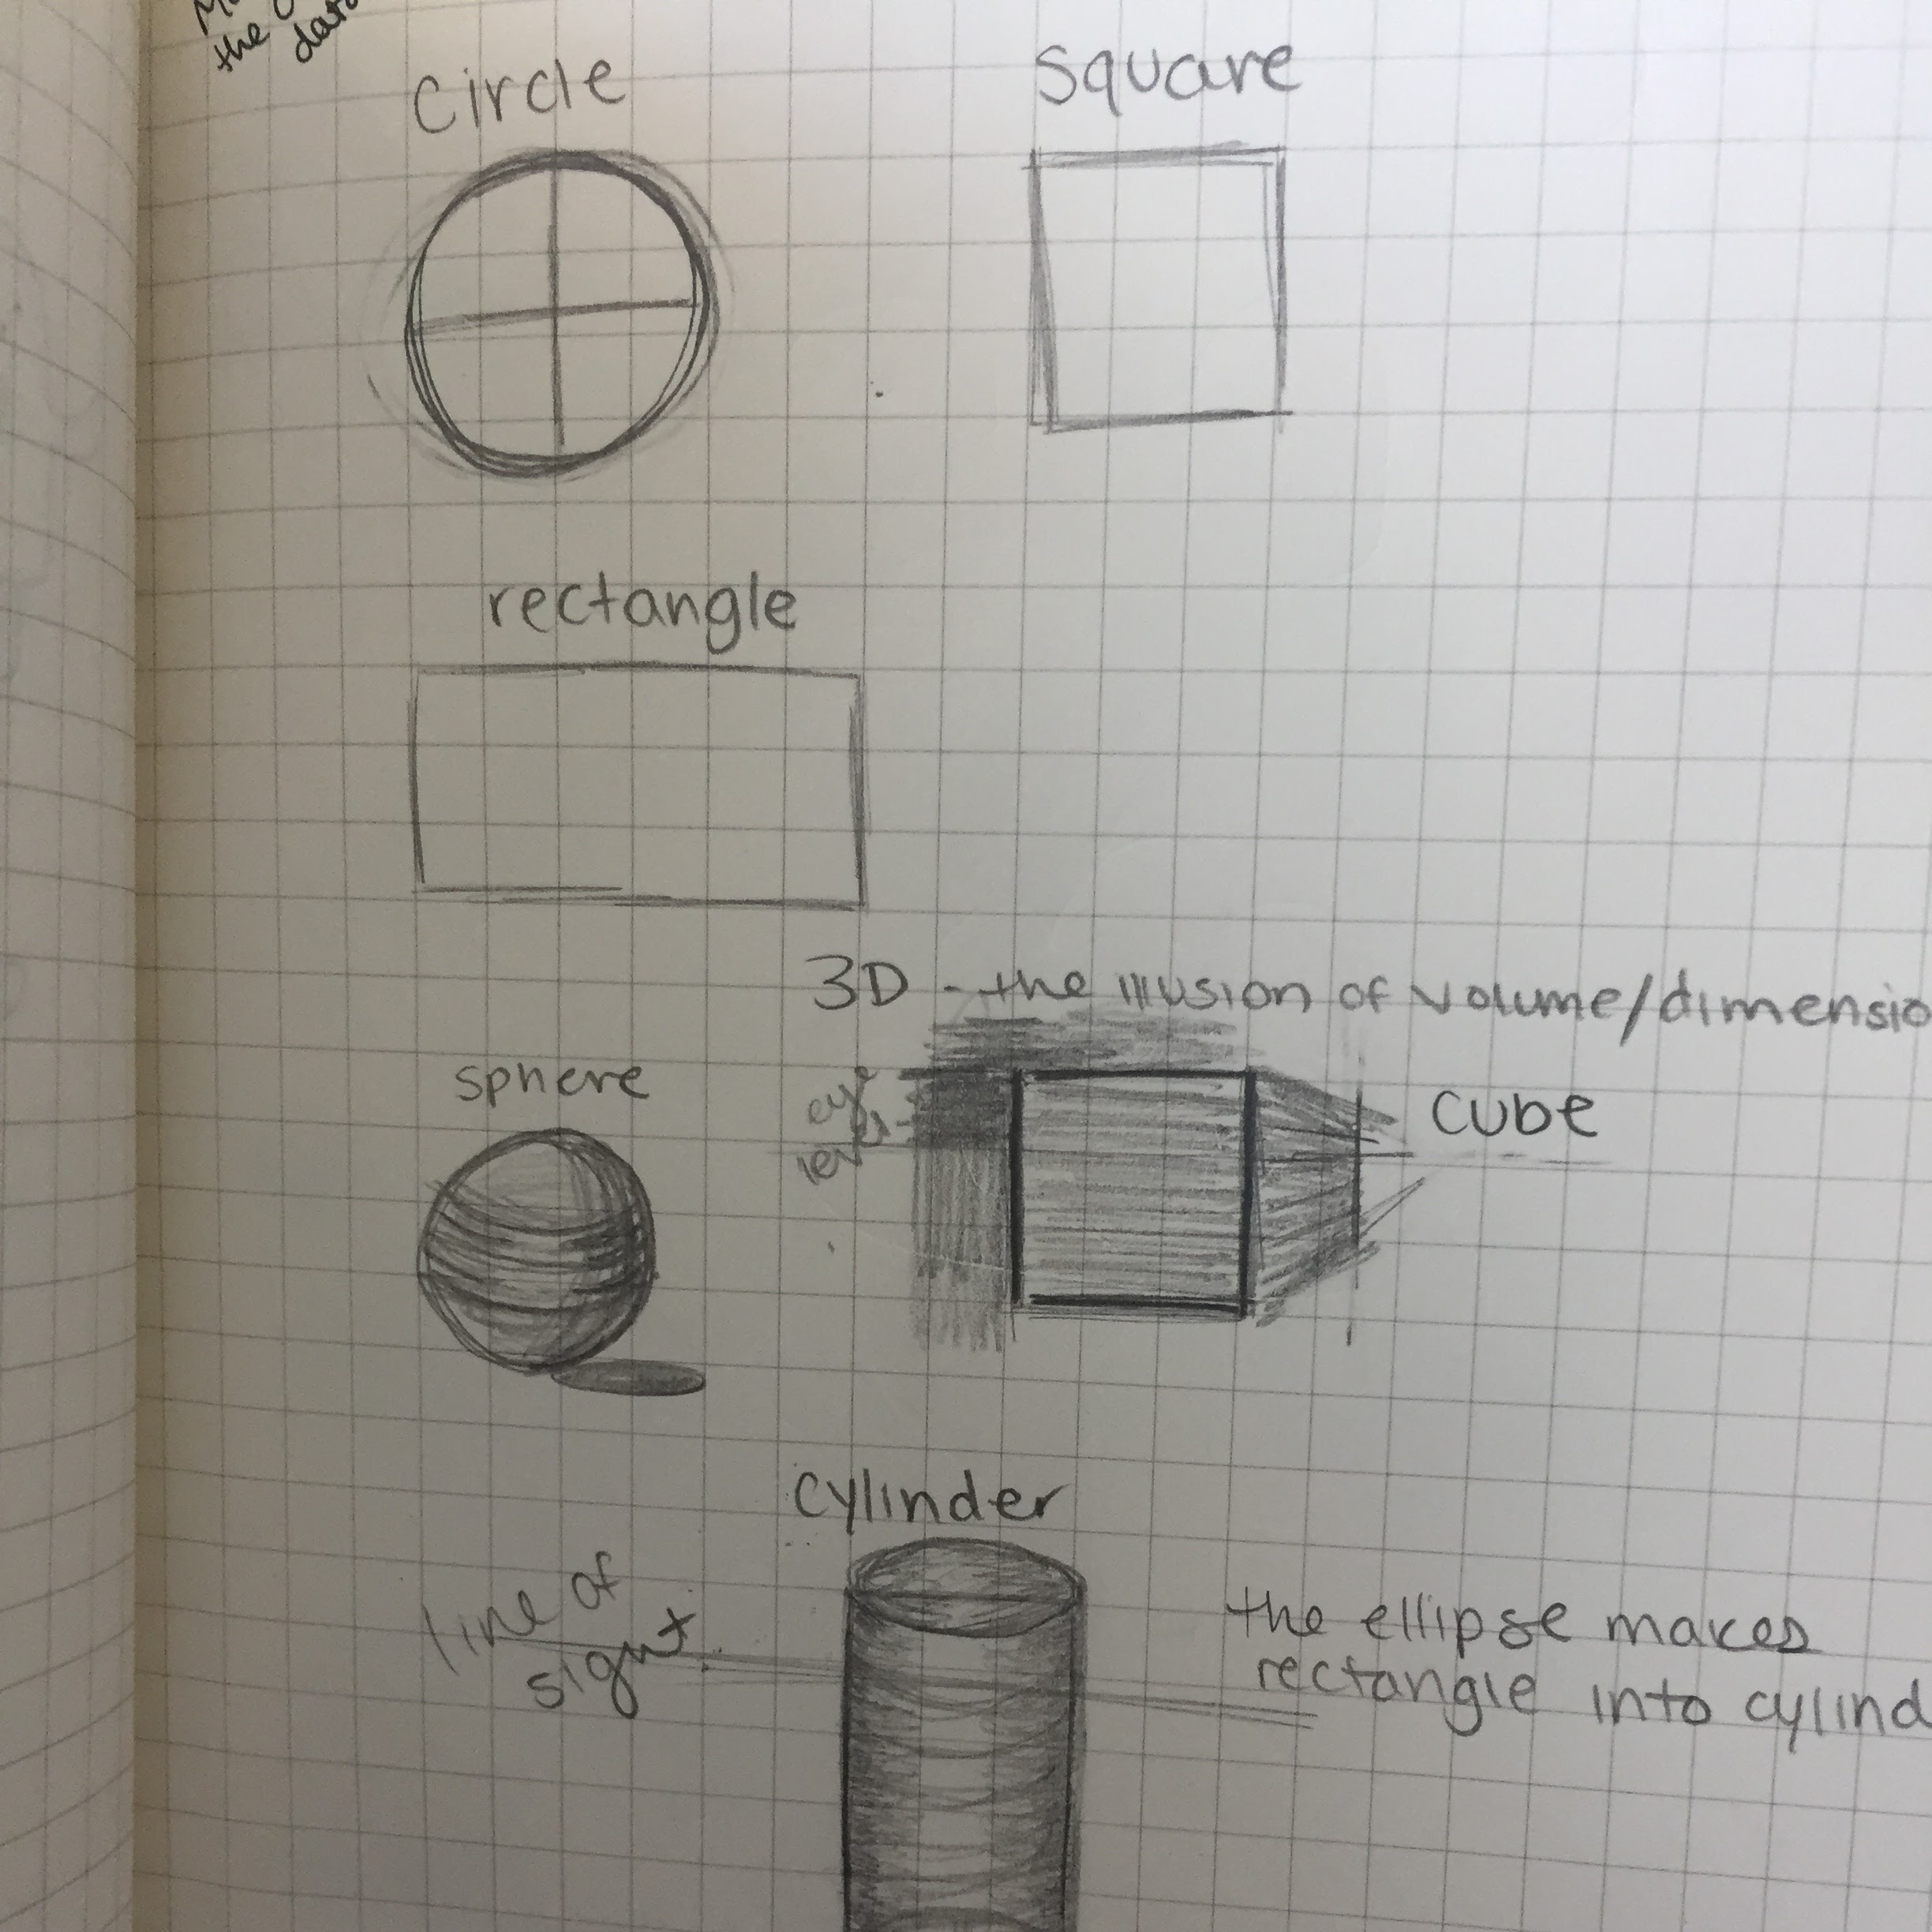 the
circle
square
rectangle
3D - the illusion of volume/dimensio
sphere
eye
level
cube
cylinder
line of
sight
the ellipse makes
rectangle into cylind